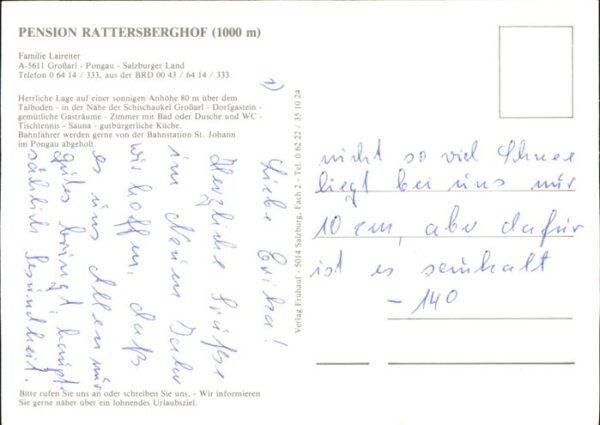 PENSION RATTERSBERGHOF (1000 m)
Familie Laireiter
A-5611 Großarl - Pongau - Salzburger Land
Telefon 0 64 14 / 333, aus der BRD 00 43 / 64 14 / 333
Herrliche Lage auf einer sonnigen Anhöhe 80 m über dem
Talboden - in der Nähe der Schischaukel Großarl - Dorfgastein -
gemütliche Gasträume - Zimmer mit Bad oder Dusche und WC -
Tischtennis - Sauna - gutbürgerliche Küche.
Bahnfahrer werden gerne von der Bahnstation St. Johann
im Pongau abgeholt.
1)
Liebe Erika!
Herzliche Grüße
im Neuen Jahr
wir hoffen, daß
es uns Allen nur
gutes bringt, haupt-
sächlich Gesundheit.
Bitte rufen Sie uns an oder schreiben Sie uns. - Wir informieren
Sie gerne näher über ein lohnendes Urlaubsziel.
Verlag Frühauf - 5014 Salzburg, Fach 2 - Tel. 0 62 22 / 35 10 24
nicht so viel Schnee
liegt bei uns nur
10 cm, aber dafür
ist es saukalt
- 140